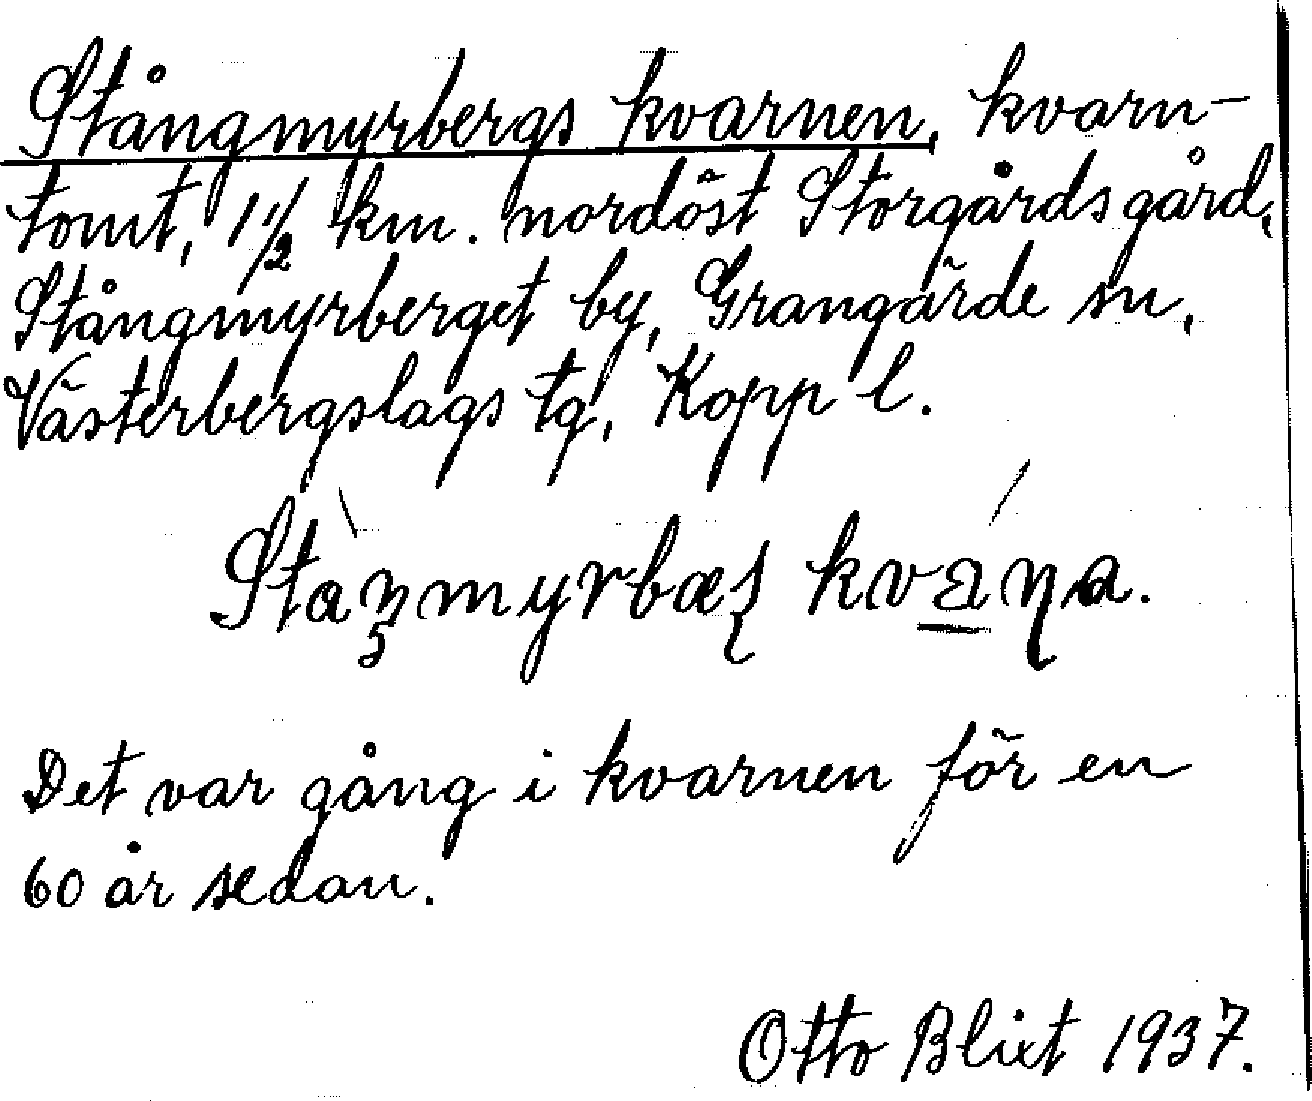 Stångmyrbergs kvarnen, kvarn-
tomt, 1 1/2 km. nordöst Storgårds gård,
Stångmyrberget by, Grangärde sn,
Västerbergslags tg, Kopp l.
Staŋmyrbæʂ kvaɳa.
Det var gång i kvarnen för en
60 år sedan.
Otto Blixt 1937.